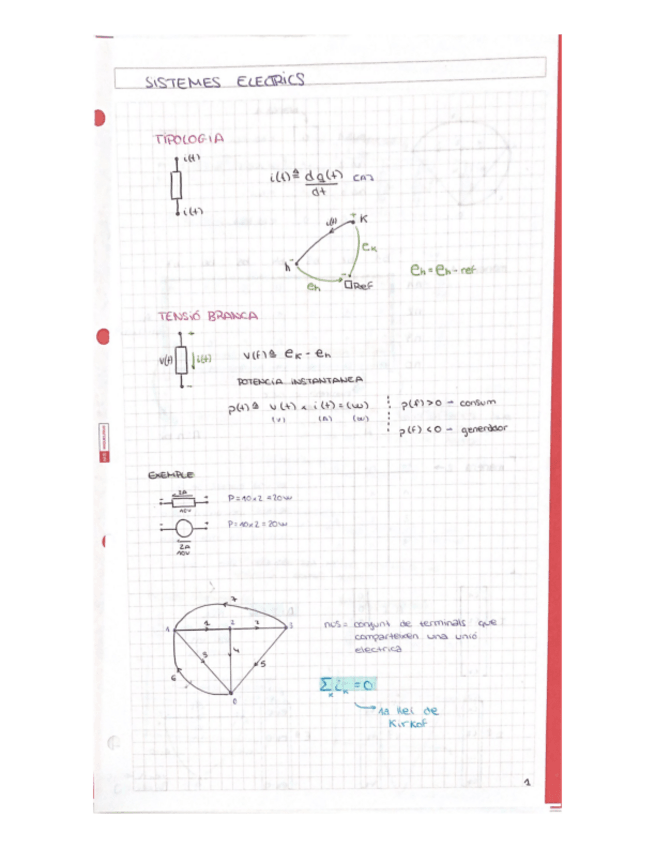 SISTEMES ELECTRICS
TIPOLOGIA
i(t)
i(t)
i(t) ≜ dq(t)/dt [A]
i(t)
K
eK
h
eh
Ref
eh = eh - ref
TENSIÓ BRANCA
v(t)
i(t)
v(t) ≜ eK - eh
POTENCIA INSTANTANEA
p(t) ≜ v(t) x i(t) = (w)
(V) (A) (W)
p(t) > 0 - consum
p(t) < 0 - generador
EXEMPLE
2A
10V
P = 10 x 2 = 20w
P = 10 x 2 = 20w
2A
10V
7
1
1
2
2
3
4
5
5
6
0
nus = conjunt de terminals que
comparteixen una unió
electrica
Σ iK = 0
K
1a llei de
Kirkof
1